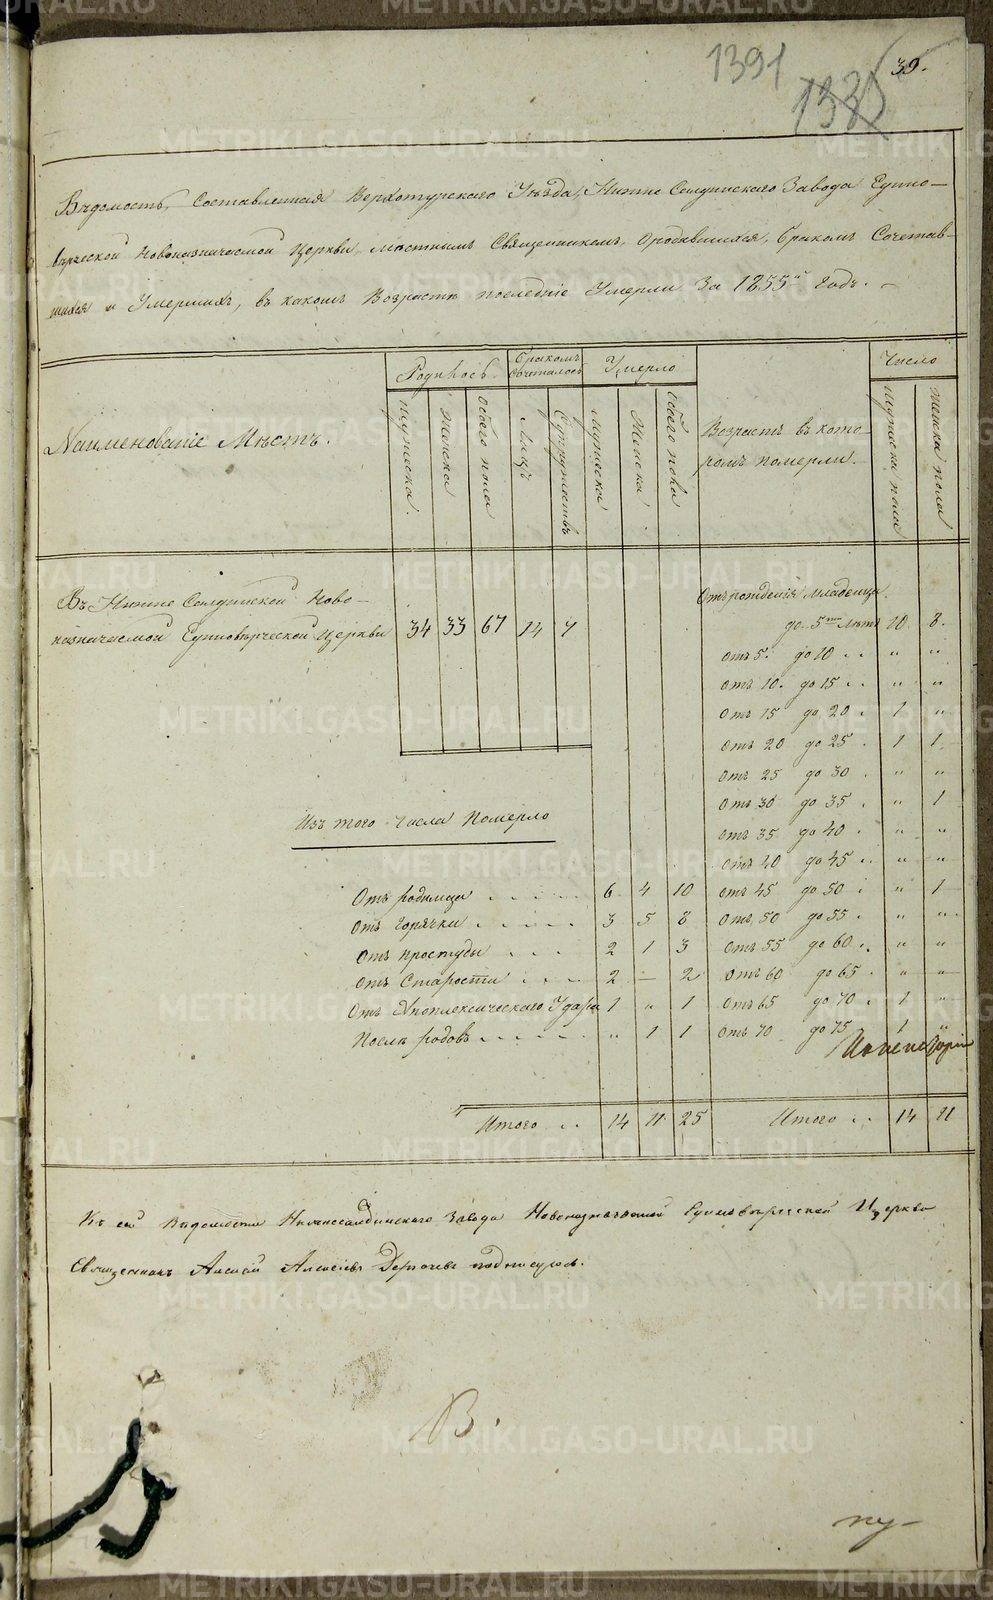 1391
39.
1385
Вѣдомость, Составленная Верхотурскаго Уѣзда, Нижне Салдинскаго Завода Едино-
вѣрческой Новоназначаемой Церкви, мѣстнымъ Священникомъ, о родившихся, бракомъ Сочетав-
шихся и Умершихъ, въ какомъ Возрастѣ последніе Умерли За 1855й Годъ. -
Наименованіе Мѣстъ.
Родилось.
Бракомъ Сочеталось
Умерло
Возрастъ въ кото-
ромъ померли.
Число
Мужеска.
Женска
Обоего пола
Лицъ
Супружествъ
Мужеска
Женска
Обоего пола
Мужеска пола
Женска пола
Въ Нижне Салдинской Ново-
назначаемой Единовѣрческой Церкви 34 33 67 14 7
Отъ рожденія младенца
до 5ти Лѣтъ 10 8.
Отъ 5. до 10 . . " "
Отъ 10. до 15 . . " "
Отъ 15 до 20 . 1 "
Отъ 20 до 25 . 1 1
Отъ 25 до 30 . " "
Отъ 30 до 35 . " 1
Отъ 35 до 40 . " "
Отъ 40 до 45 . . " "
Отъ 45 до 50 . " 1
Отъ 50 до 55 . " "
Отъ 55 до 60 . . " "
Отъ 60 до 65 . " "
Отъ 65 до 70 . 1 "
Отъ 70 до 75 1 "
Изъ того Числа Померло
Отъ родимца . . . . . 6 4 10
Отъ горячки . . . . . 3 5 8
Отъ простуды . . . 2 1 3
Отъ Старости . . . 2 - 2
Отъ Апоплексическаго Удара 1 " 1
Послѣ родовъ . . . . . " 1 1
Итого . . 14 11 25
Итого . . 14 11
Къ сей Вѣдомости Нижнесалдинскаго Завода Новоназначаемой Единовѣрческой Церкви
Священникъ Алексѣй подписуюсь.
В.
ну-
METRIKI.GASO-URAL.RU